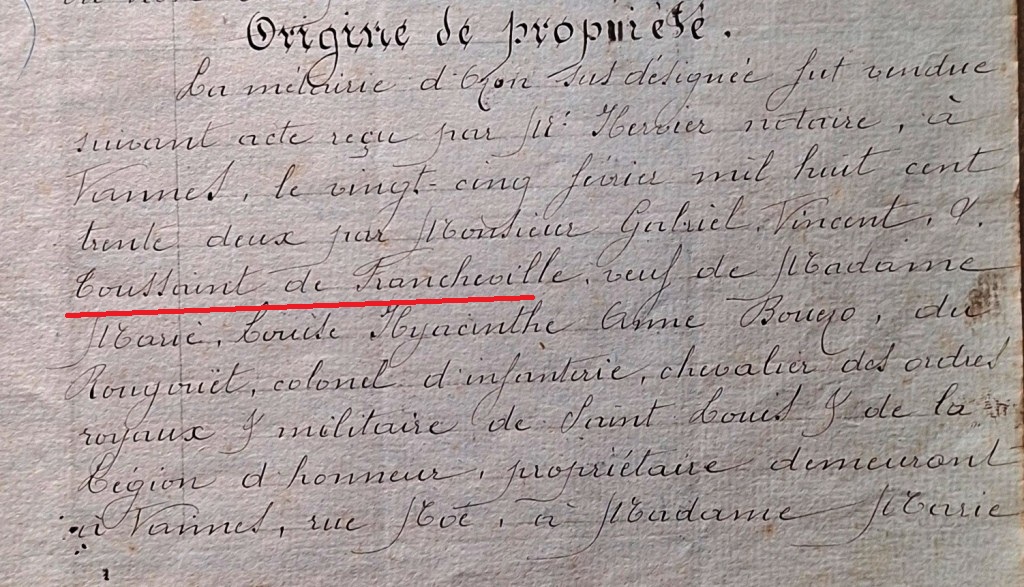 Origine de propriété.
La métairie d'Ozon sus désignée fut vendue
suivant acte reçu par Me. Hervier notaire, à
Vannes, le vingt-cinq février mil huit cent
trente deux par Monsieur Gabriel, Vincent, &
Toussaint de Francheville, veuf de Madame
Marie, Louise Hyacinthe Anne Bouczo, du
Rongouët, colonel d'infanterie, chevalier des ordres
royaux & militaire de Saint Louis & de la
Légion d'honneur, propriétaire demeurant
à Vannes, rue Noë, à Madame Marie